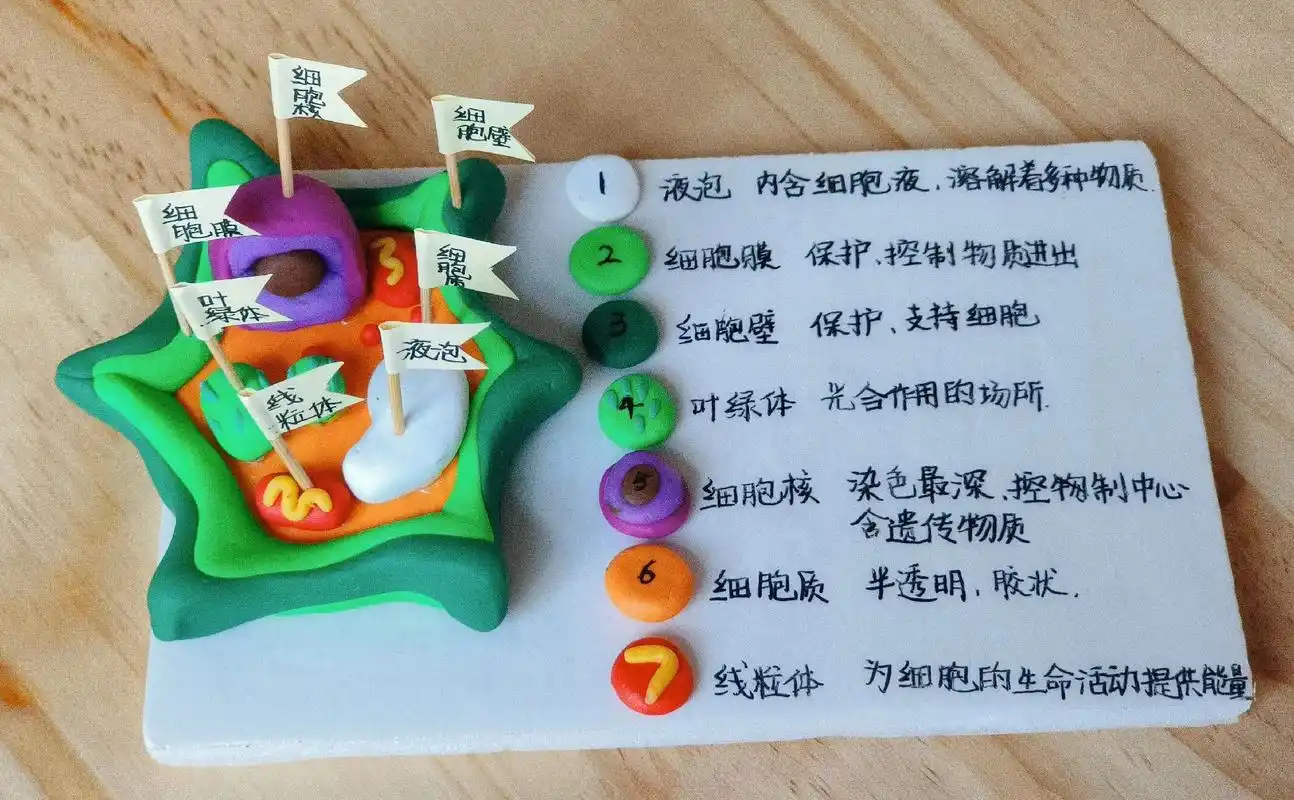 细
胞
核
细
胞壁
细
胞膜
细
胞
质
叶
绿体
液泡
线
粒体
1 液泡 内含细胞液,溶解着多种物质.
2 细胞膜 保护、控制物质进出
3 细胞壁 保护、支持细胞
4 叶绿体 光合作用的场所.
5 细胞核 染色最深、控物制中心
含遗传物质
6 细胞质 半透明,胶状.
7 线粒体 为细胞的生命活动提供能量